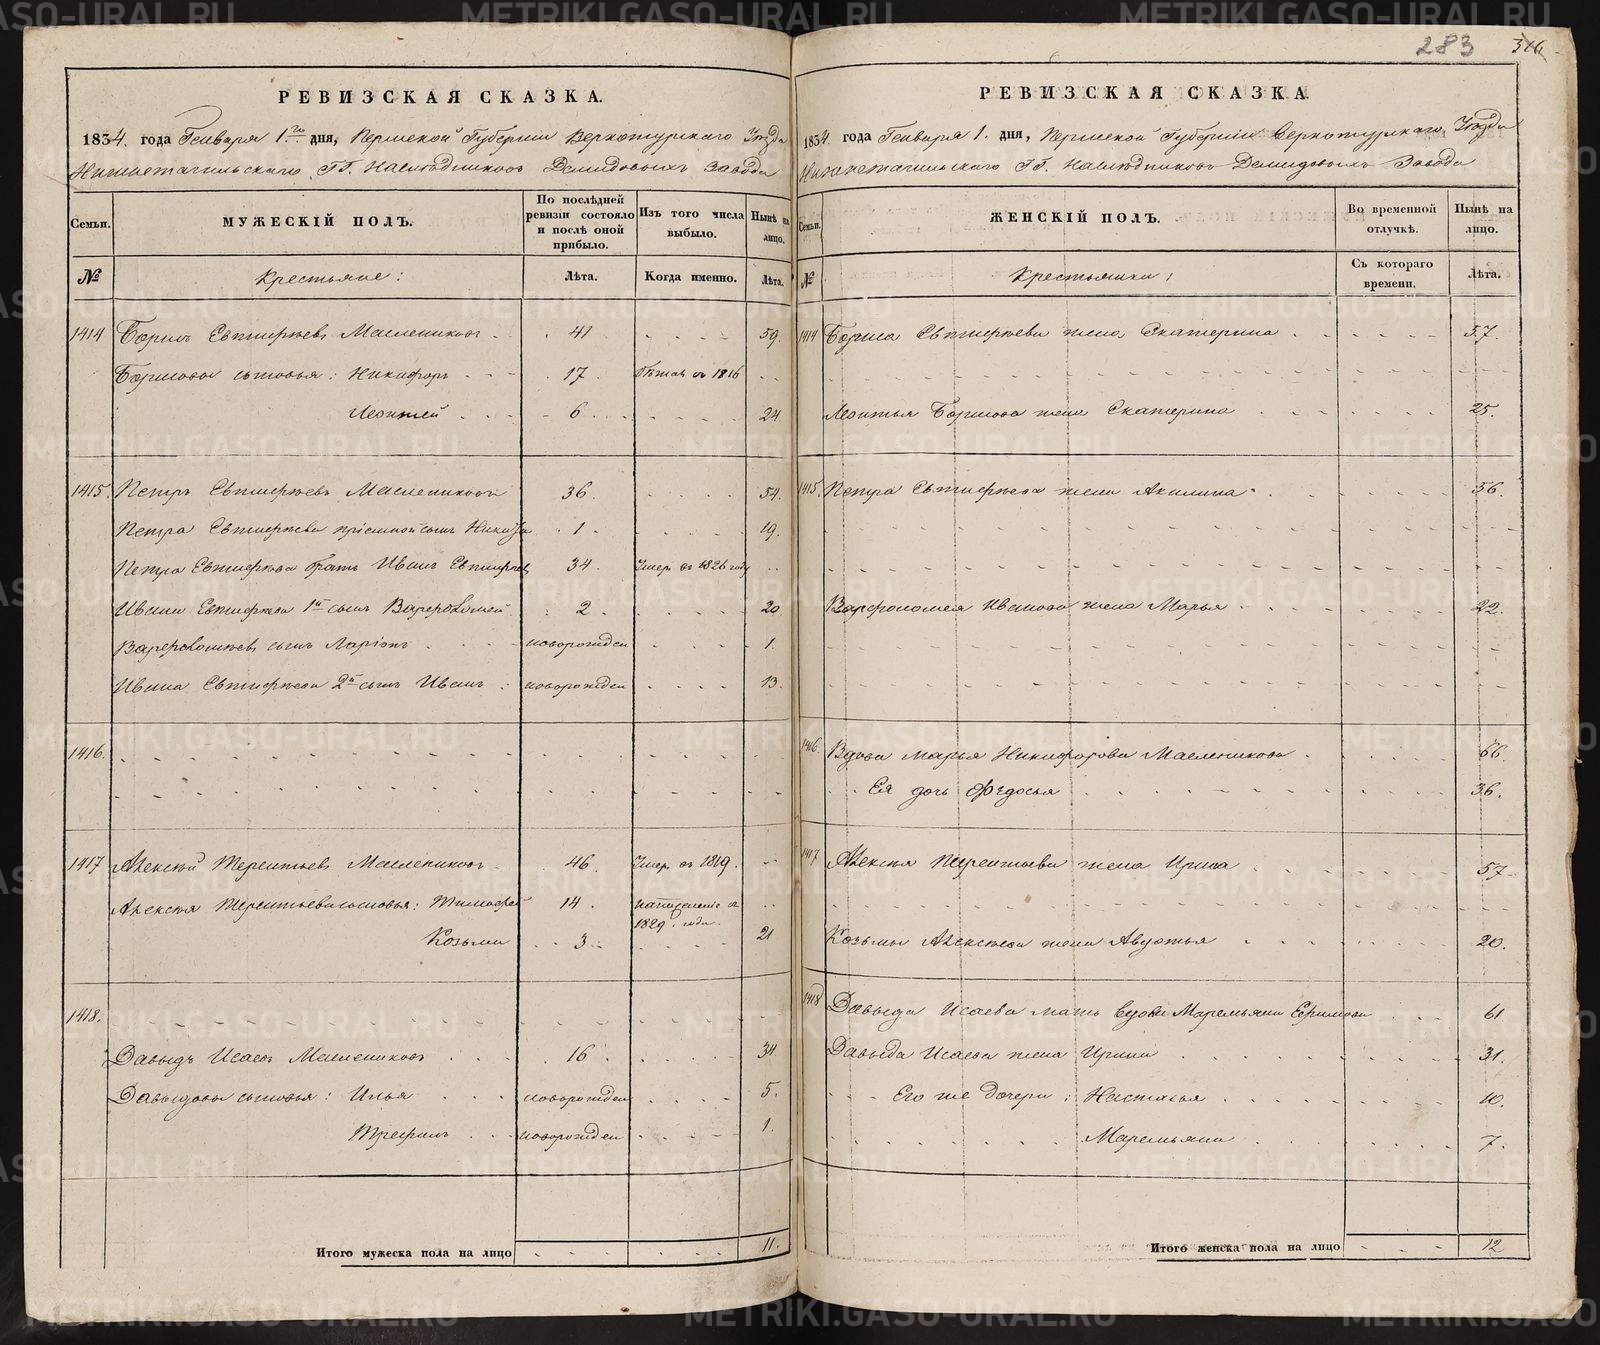 283 316
РЕВИЗСКАЯ СКАЗКА.
1834. года Генваря 1го дня, Пермской Губерніи Верхотурскаго Уѣзда
Нижнетагильскаго ГГ. Наслѣдниковъ Демидовыхъ Завода
Семьи. МУЖЕСКІЙ ПОЛЪ. По послѣдней ревизіи состояло и послѣ оной прибыло. Изъ того числа выбыло. Нынѣ на лицо.
№ Крестьяне: Лѣта. Когда именно. Лѣта.
1414 Борисъ Евтифѣевъ Маслениковъ 41 59.
Борисовы сыновья: Никифоръ 17 Бѣжал въ 1816
Леонтей 6 24
1415. Петръ Евтифѣевъ Маслениковъ 36. 54.
Петра Евтифѣева пріемной сынъ Никита 1. 19.
Петра Евтифѣева братъ Иванъ Евтифѣевъ 34. Умер. въ 1826 году
Ивана Евтифѣева 1й сынъ Варфоломей 2. 20
Варфоломѣевъ сынъ Ларіонъ новорожден 1.
Ивана Евтифѣева 2й сынъ Иванъ новорожден 13.
1416.
1417 Алексѣй Терентьевъ Маслениковъ 46. Умер. въ 1819.
Алексѣя Терентьева сыновья: Тимофей 14. 1829. года.
Козьма 3. 21
1418.
Давыдъ Исаевъ Маслениковъ 16. 34.
Давыдовы сыновья: Илья новорожден 5.
Трефилъ новорожден 1.
Итого мужеска пола на лицо 11.
РЕВИЗСКАЯ СКАЗКА.
1834. года Генваря 1. дня, Пермской Губерніи Верхотурскаго Уѣзда
Нижнетагильскаго ГГ. Наслѣдниковъ Демидовыхъ Завода
Семьи. ЖЕНСКІЙ ПОЛЪ. Во временной отлучкѣ. Нынѣ на лицо.
№ Крестьянки: Съ котораго времени. Лѣта.
1414 Бориса Евтифѣева жена Екатерина 57.
Леонтья Борисова жена Екатерина 25.
1415. Петра Евтифѣева жена Акилина 56.
Варфоломея Иванова жена Марья 22.
1416. Вдова Марья Никифорова Масленикова 66.
Ея дочь Федосья 36.
1417 Алексѣя Терентьева жена Ирина 57.
Козьмы Алексѣева жена Авдотья 20.
1418 Давыда Исаева мать вдова Маремьяна Ефимова 61
Давыда Исаева жена Ирина 31.
Его же дочери: Настасья 10.
Маремьяна 7.
Итого женска пола на лицо 12
METRIKI.GASO-URAL.RU